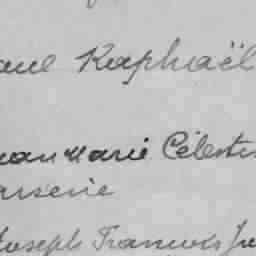 aul Raphaël
ean Marie Célesti
arsene
Joseph Francois Ju